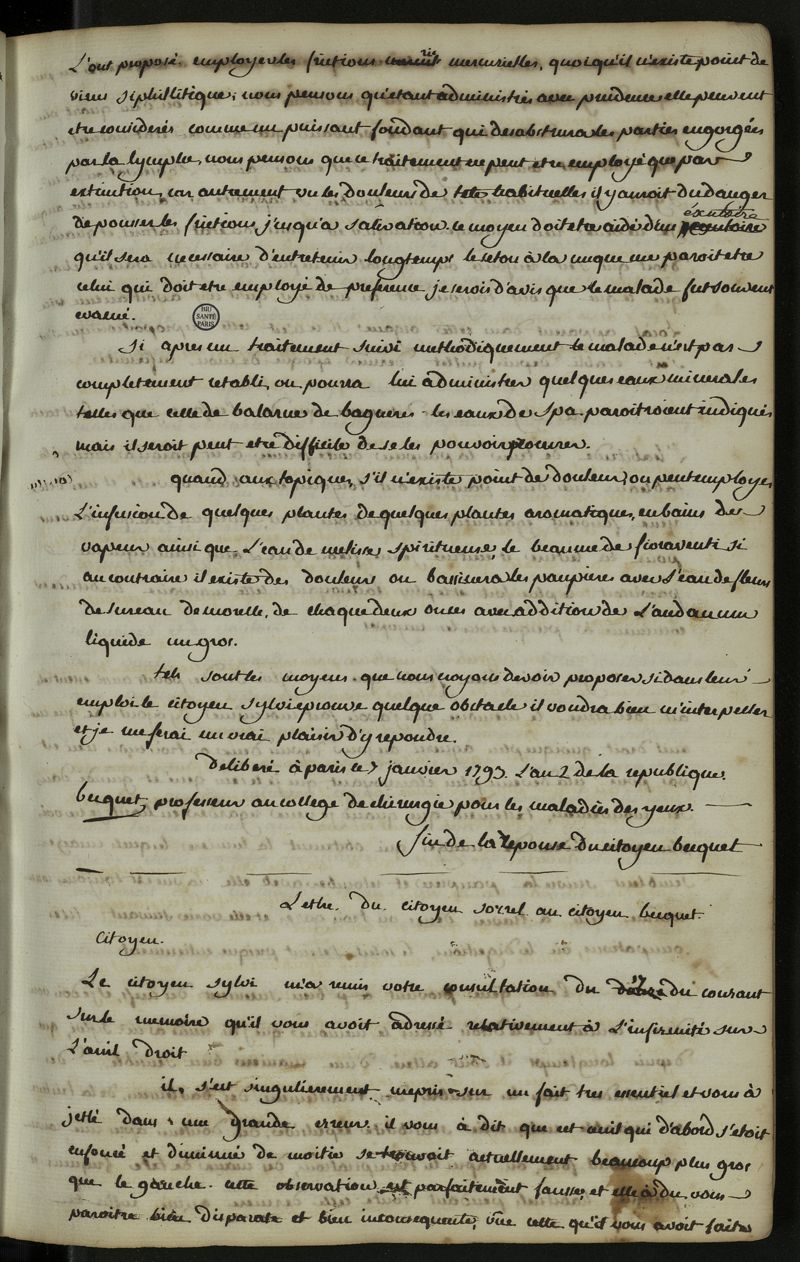 L'ont proposé. employer les frictions mercurielles, quoiqu'il n'existe point de
virus siphillitique; nous pensons qu'etant administrés avec prudence elle peuvent
etre considerés comme un puissant fondant qui desabstruera les parties engorgées
par la lymphe, nous pensons que ce traitement ne peut etre employé que par
extinction, car autrement vu les douleurs de tete habituelles il y auroit du danger
de pousser les frictions j'usqu'a salivation. ce moyen doit etre aidé d'un éxutoire
qu'il sera necessaire d'entretenir longtemps le seton à la nuque me paroit etre
celui qui doit etre employé de preference je serois d'avis que le malade fut souvent
evacué.
BIU SANTÉ PARIS
Si apres un traitement suivi methodiquement le malade n'est pas
completement retabli, on pourra lui administrer quelques eaux minerales
telles que celle de balarue de bagneres. les eaux de spa. paroitroient indiqués
mais il seroit peut etre difficile de se les pouvoir procurer.
quand aux topiques, s'il n'existe point de douleur, on peut employer
L'infusion de quelques plantes de quelques plantes aromatiques, en bains de
vapeur ainsi que L'eau de melisse spiritueuse, le beaume de fioraventi si
au contraire il existe des douleurs on bassinera les paupieres avec L'eau de fleurs
de sureau de morelle, de chaque deux onces avec addition de L'audanum
liquide un gros.
tels sont les moyens que nous croyons devoir proposer si dans leur
emploi le citoyen sylvi eprouve quelque obstacle il voudra bien m'interpeller
et je me ferai un vrai plaisir d'y repondre.
Deliberé à paris le 7 janvier 1793. L'an 2 de la republique.
becquet, professeur au college de chirurgie pour les maladies des yeux.
fin de la reponse du citoyen becquet
Lettre du citoyen sorrel au citoyen becquet.
Citoyen.
Le citoyen sylvi m'a remis votre consultation du 7 du courant
sur le memoire qu'il vous avoit adressé relativement à L'infirmité sur
L'œuil droit
il, s'est singulierement mepris sur un fait tres essentiel et vous à
jetté dans une grande erreur. il vous à dit que cet œuil qui d'abord s'etoit
enfoncé et diminué de moitié se trouvoit actuellement beaucoup plus gros
que le gauche. cette observation est parfaitement fausse, et elle à du vous
paroitre bien disparate et bien inconsequente, vue celle qu'il vous avoit faites